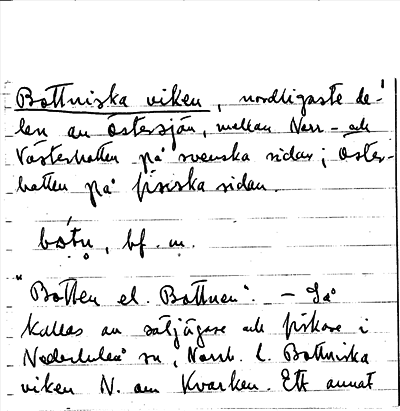 Bottniska viken, nordligaste de-
len av Östersjön, mellan Norr- och
Västerbotten på svenska sidan; Öster-
botten på finska sidan.
bótn, bf. m.
"Botten el. Bottnen". – Så
kallas av säljägare och fiskare i
Nederluleå sn, Norrb. l. Bottniska
viken N. om Kvarken. Ett annat